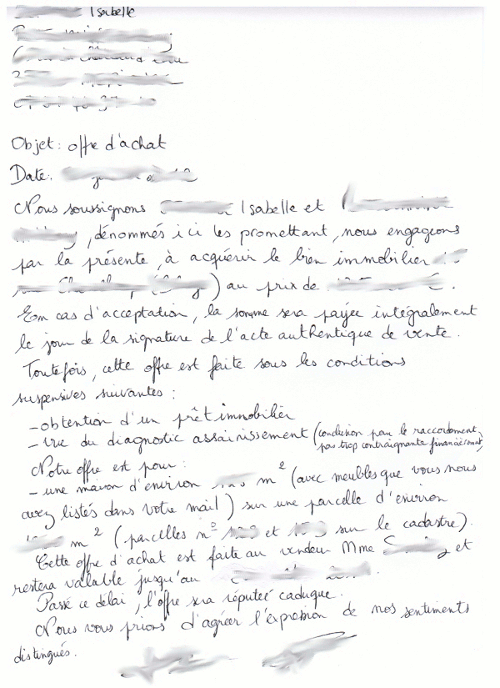 Isabelle
Objet: offre d'achat
Date:
Nous soussignons Isabelle et
, dénommés ici les promettant, nous engageons
par la présente, à acquérir le bien immobilier
) au prix de
En cas d'acceptation, la somme sera payée intégralement
le jour de la signature de l'acte authentique de vente.
Toutefois, cette offre est faite sous les conditions
suspensives suivantes :
- obtention d'un prêt immobilier
- vue du diagnostic assainissement (condition pour le raccordement
pas trop contraignante financièrement)
Notre offre est pour:
- une maison d'environ m² (avec meubles que vous nous
avez listés dans votre mail) sur une parcelle d'environ
m² (parcelles n° et sur le cadastre).
Cette offre d'achat est faite au vendeur Mme et
restera valable jusqu'au
Passé ce délai, l'offre sera réputée caduque.
Nous vous prions d'agréer l'expression de nos sentiments
distingués.